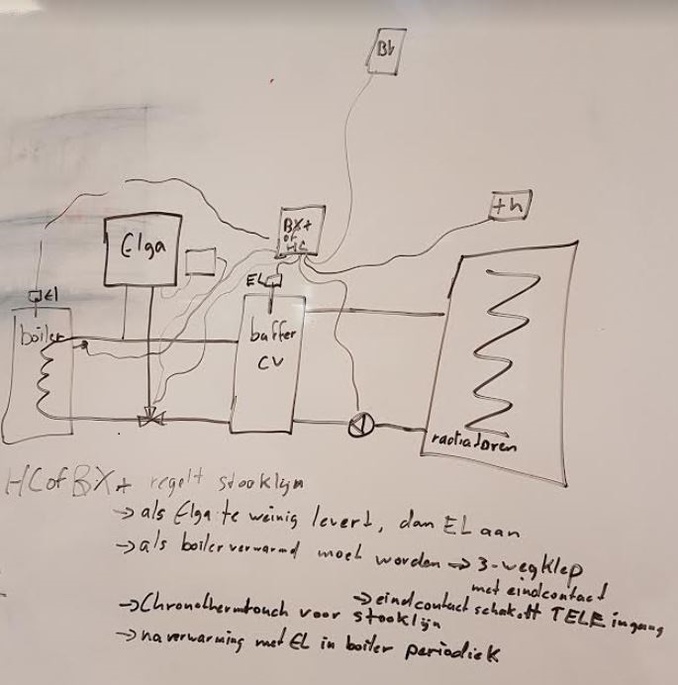 Bb
BX+
of
HC
th
Elga
EL
El
boiler
buffer
CV
radiadoren
HC of BX+ regelt stooklijn
→ als Elga te weinig levert, dan EL aan
→ als boiler verwarmd moet worden → 3-wegklep
met eindcontact
→ eindcontact schakelt TELE ingang
→ Chronothermtouch voor stooklijn
→ naverwarming met EL in boiler periodiek